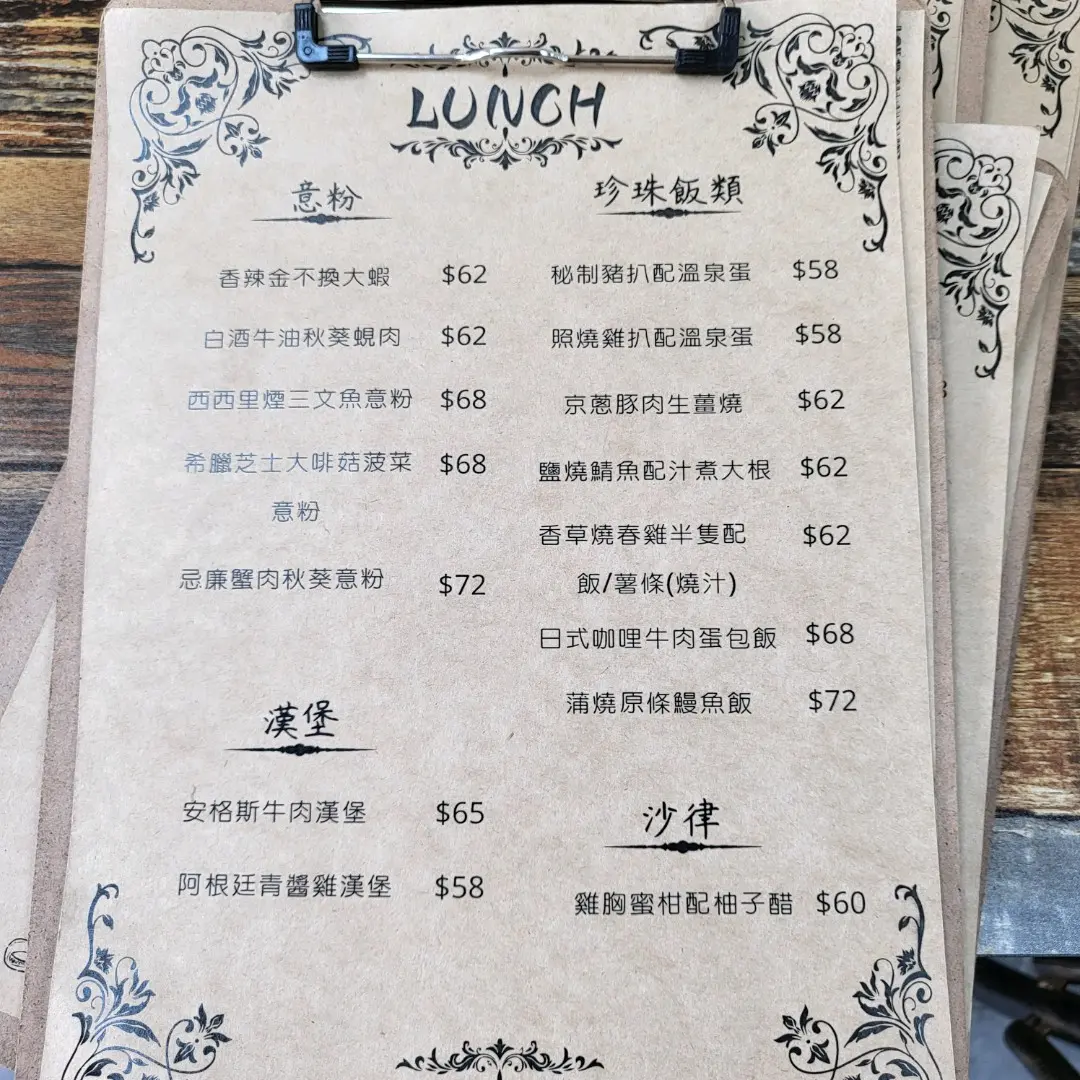 LUNCH
意粉
香辣金不換大蝦 $62
白酒牛油秋葵蜆肉 $62
西西里煙三文魚意粉 $68
希臘芝士大啡菇菠菜 $68
意粉
忌廉蟹肉秋葵意粉 $72
漢堡
安格斯牛肉漢堡 $65
阿根廷青醬雞漢堡 $58
珍珠飯類
秘制豬扒配溫泉蛋 $58
照燒雞扒配溫泉蛋 $58
京蔥豚肉生薑燒 $62
鹽燒鯖魚配汁煮大根 $62
香草燒春雞半隻配 $62
飯/薯條(燒汁)
日式咖哩牛肉蛋包飯 $68
蒲燒原條鰻魚飯 $72
沙律
雞胸蜜柑配柚子醋 $60